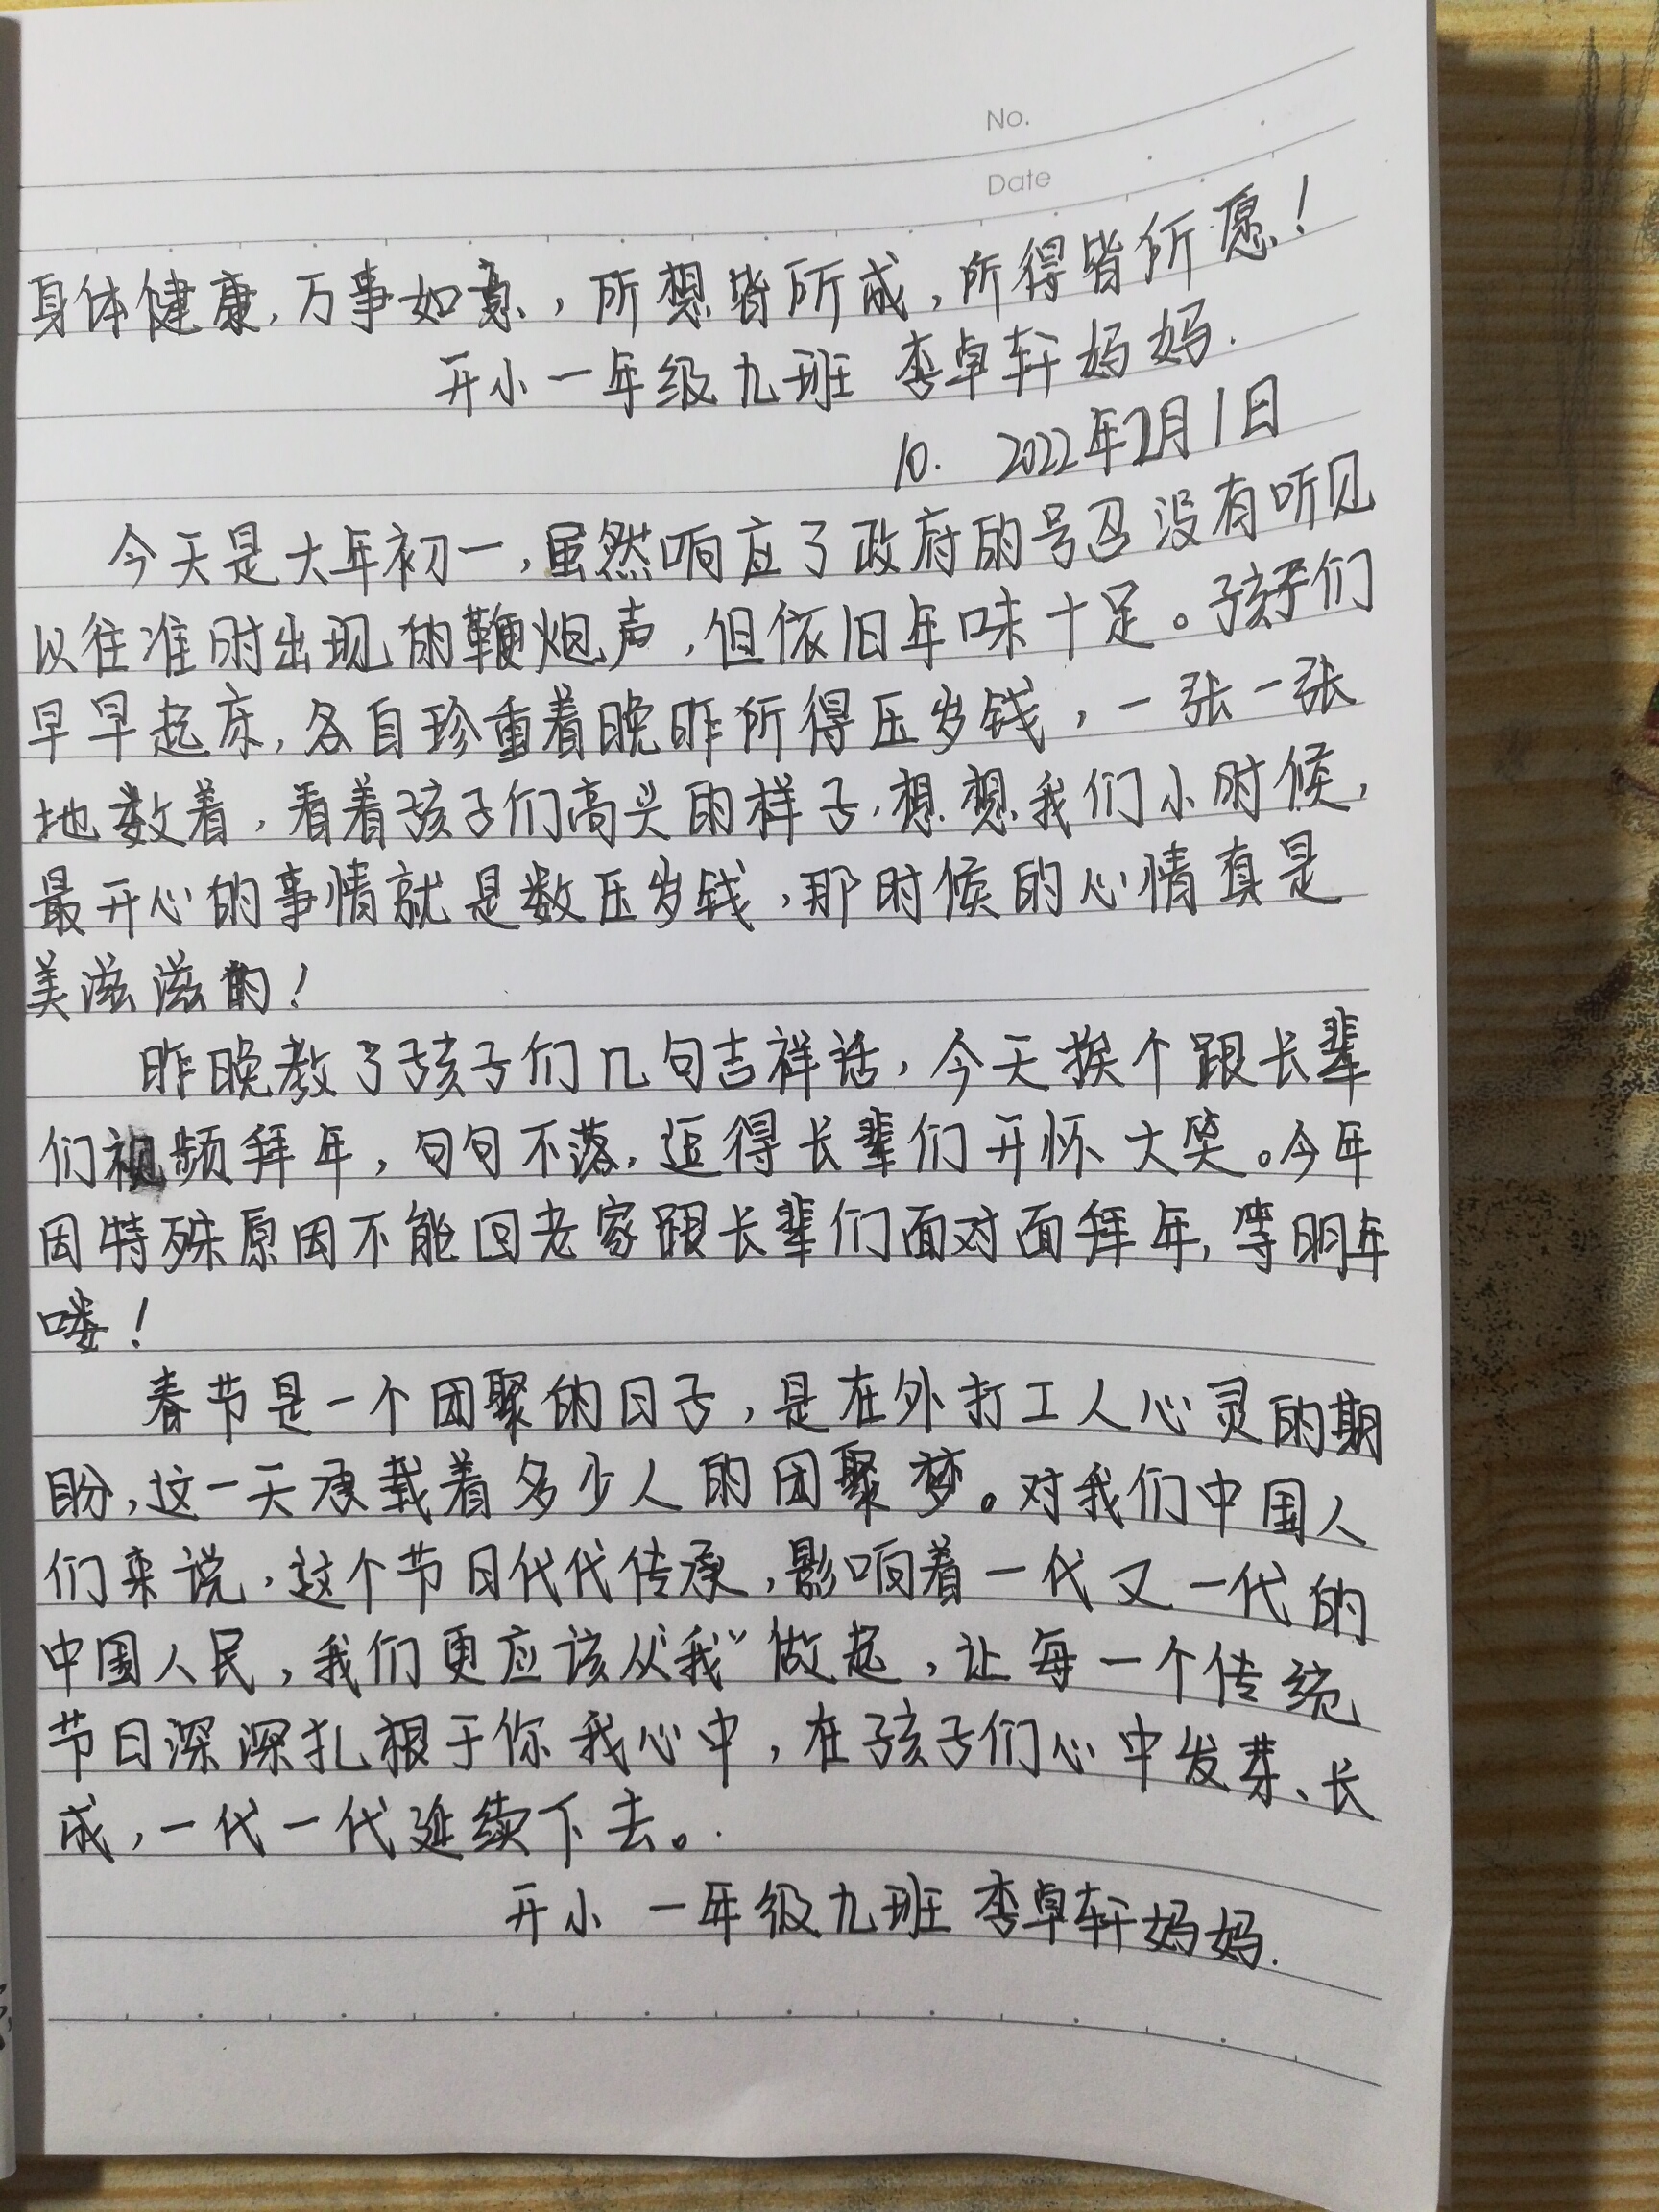 No.
Date
身体健康,万事如意,所想皆所成,所得皆所愿!
开小一年级九班 李卓轩妈妈.
10. 2022年2月1日
今天是大年初一,虽然响应了政府的号召没有听见
以往准时出现的鞭炮声,但依旧年味十足。孩子们
早早起床,各自珍重着晚昨所得压岁钱,一张一张
地数着,看着孩子们高兴的样子,想想我们小时候,
最开心的事情就是数压岁钱,那时候的心情真是
美滋滋的!
昨晚教了孩子们几句吉祥话,今天挨个跟长辈
们视频拜年,句句不落,逗得长辈们开怀大笑。今年
因特殊原因不能回老家跟长辈们面对面拜年,等明年
喽!
春节是一个团聚的日子,是在外打工人心灵的期
盼,这一天承载着多少人的团聚梦。对我们中国人
们来说,这个节日代代传承,影响着一代又一代的
中国人民,我们更应该从“我”做起,让每一个传统
节日深深扎根于你我心中,在孩子们心中发芽、长
成,一代一代延续下去。
开小 一年级九班 李卓轩妈妈.